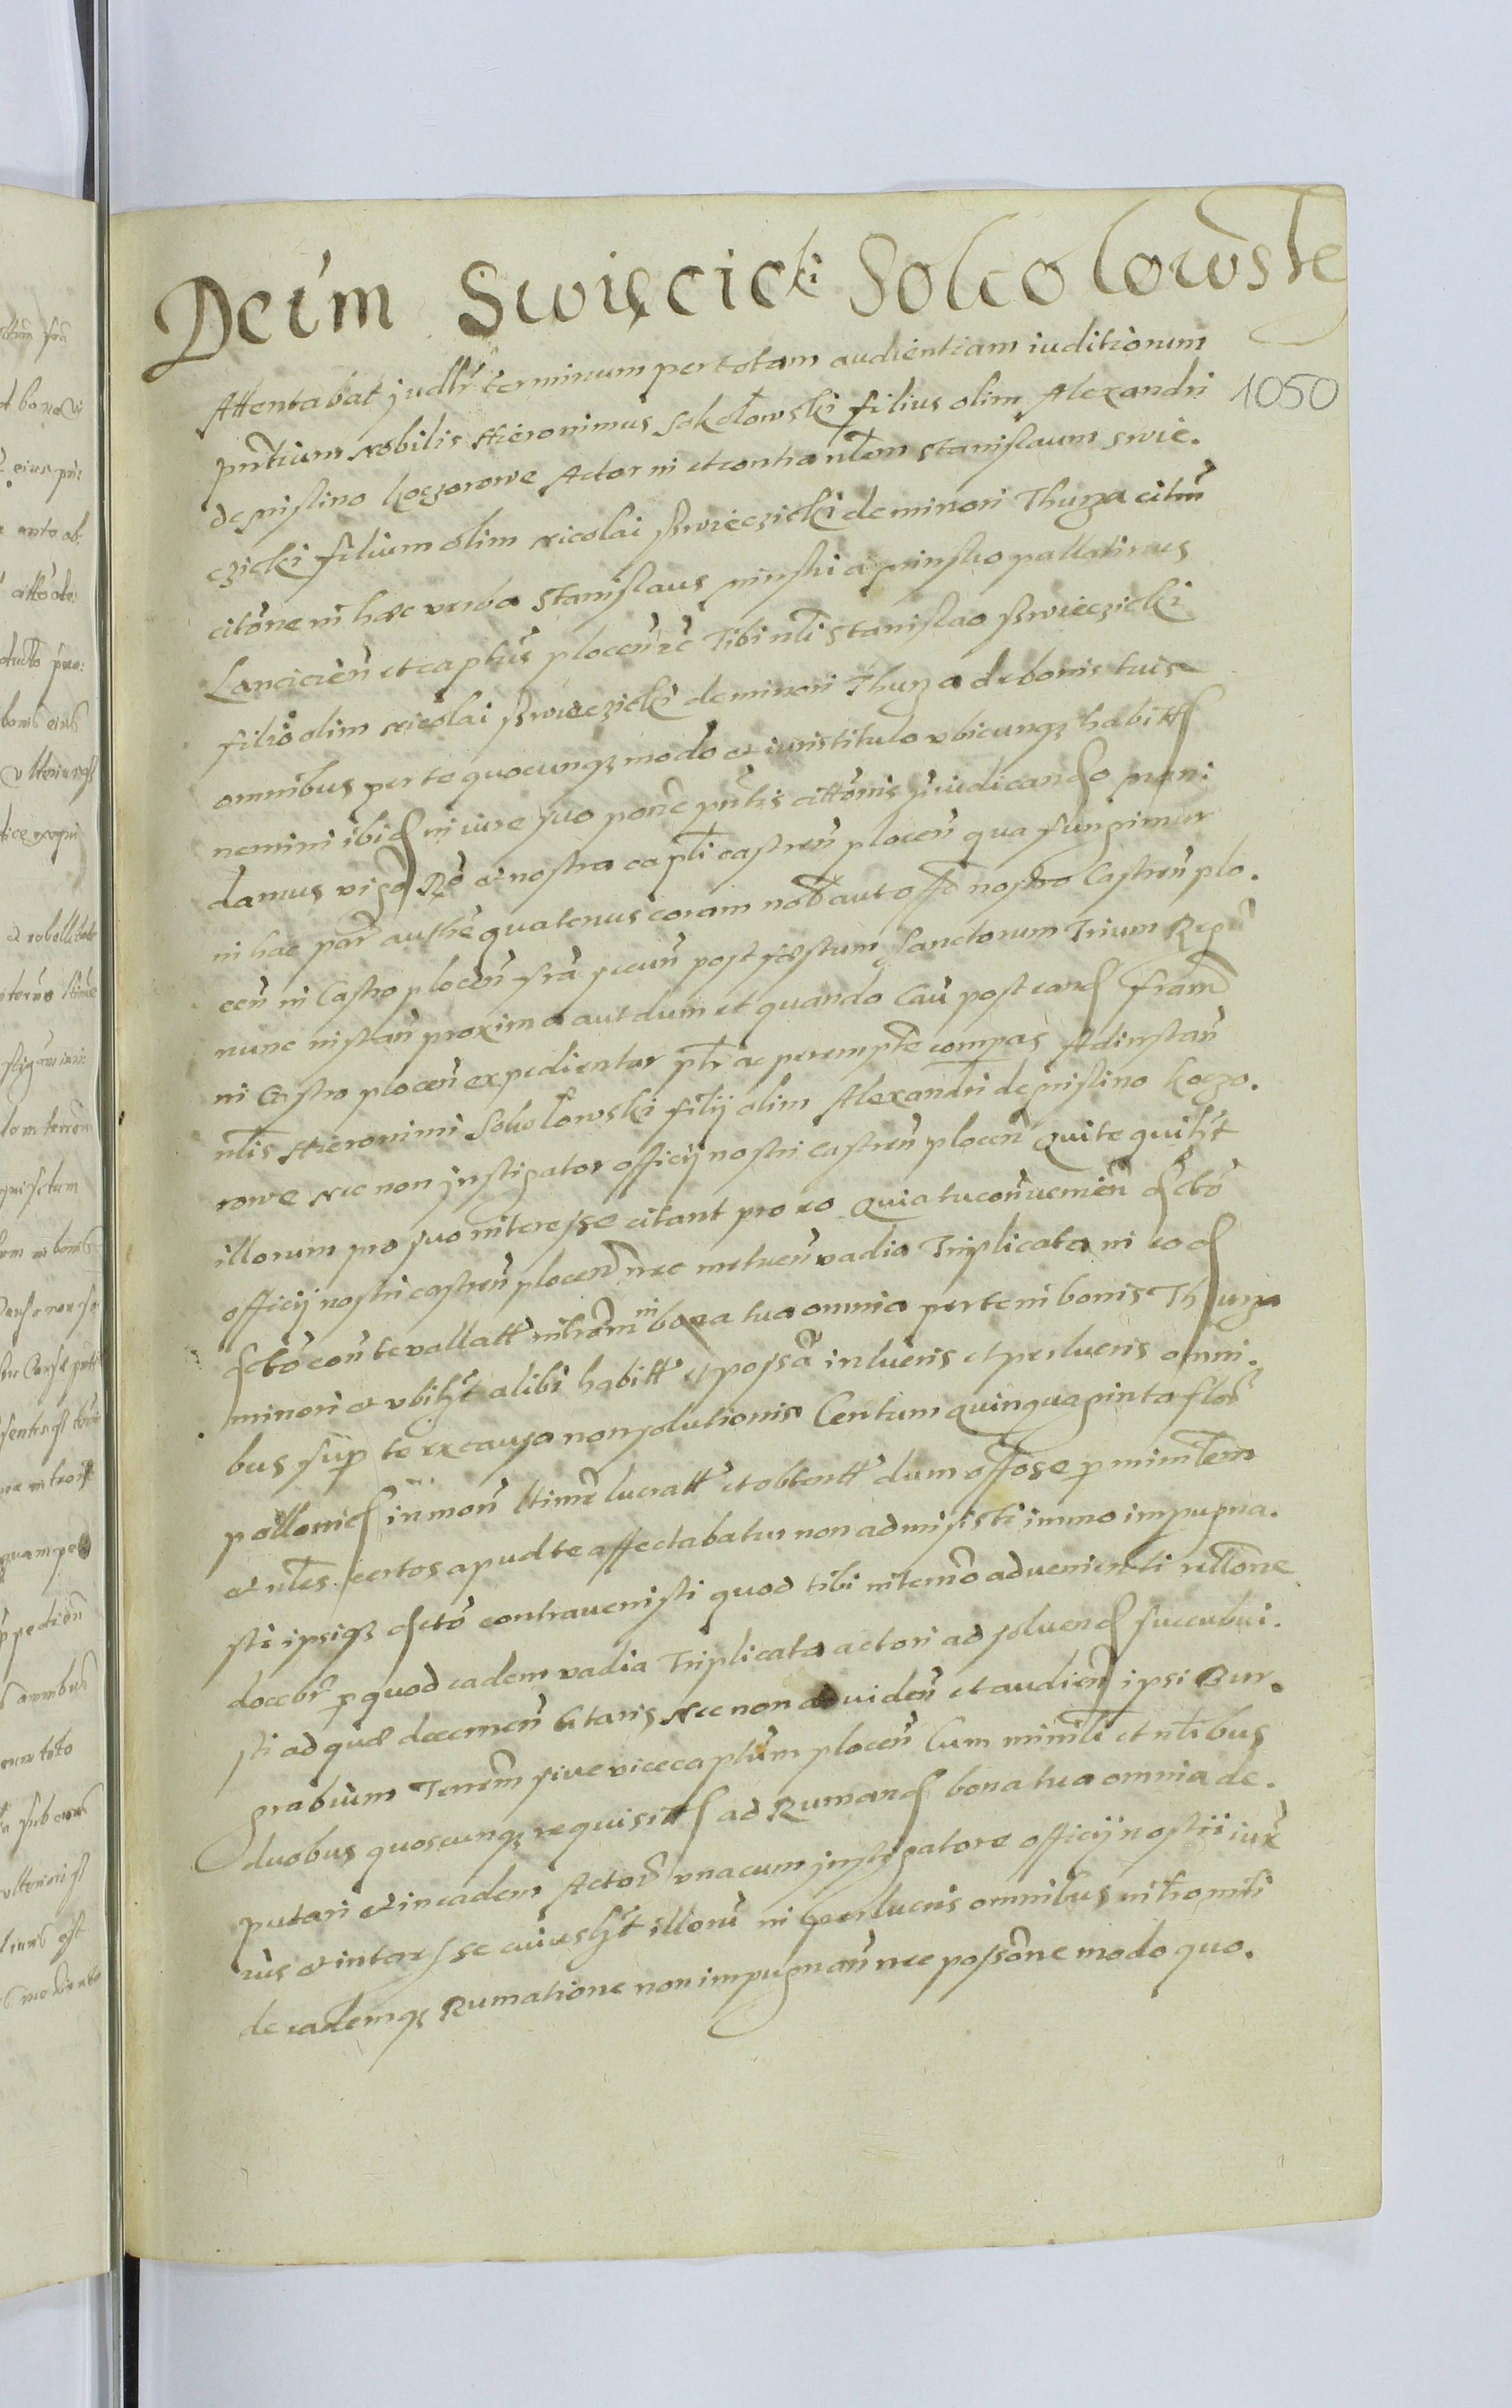 Decim Swięcicki Sokolowski
Attentabat judlr terminum per totam audientiam iuditiorum
pntium Nobilis Hieronimus Sokołowski filius olim Alexandri
1050
de Koczorowe Actor in et contra nlem Stanislaum Swie.
czicki filium olim Nicolai Swieczicki de minori Thuza citm
citone in haec verba Stanislaus Minski a Minsko pallatinus
Lancicien et captus plocen zc Tibi nli Stanislao Swieczicki
filio olim Nicolai Swieczicki de minori Thuza de bonis tuis
omnibus per te quocunq modo et iuris titulo ubicunq habitt
nemini ibid in iure suo ponc pntis cittonis piudicando man:
damus vigo Re et nostra capli castren plocen qua fungimur
in hac par authe quatenus coram nob aut offo nostro Castren plo.
cen in Castro plocen fra secun post festum Sanctorum Trium Regu
nunc instan proxima aut dum et quando Cau post eand fram
in Castro plocen expedientur plr ac perempte compas Ad instan
nlis Hieronimi Sokołowski filij olim Alexandri de Koczo.
rowe Nec non jnstigator officij nostri Castren plocen Qui te quilt
illorum pro suo interesse citant pro eo Quia tu convenien dcto
officij nostri castren plocen nec metuen vadia Triplicata in eod
dcto con te vallatt introm in bona tua omnia per te in bonis Thuza
minori et ubilt alibi habitt et possa in lucris et perlucris omni.
bus sup te ex causa non solutionis Centum quinquaginta flor
pollonid in mon ltimr lucratt et obtentt dum offose p minrlem
et nles certos apud te affectabatur non admisisti immo impugna.
sti ipsiq dcto contravenisti quod tibi in termo advenienti rellone
docebr p quod eadem vadia Triplicata actori ad solvend succubui.
sti ad quae decernen citaris Nec non ad viden et audien ipsi Bur.
grabium Tenrem sive vicecaptum plocen Cum minrli et nlibus
duobus quoscunq requisitt ad Rumand bona tua omnia de.
putari et in eadem Actor una cum jnstigatore officij nostri iux
ius et interesse cuiuslt illoru in perlucris omnibus intromitti
de eademq Rumatione non impugnan nec possone modo quo.